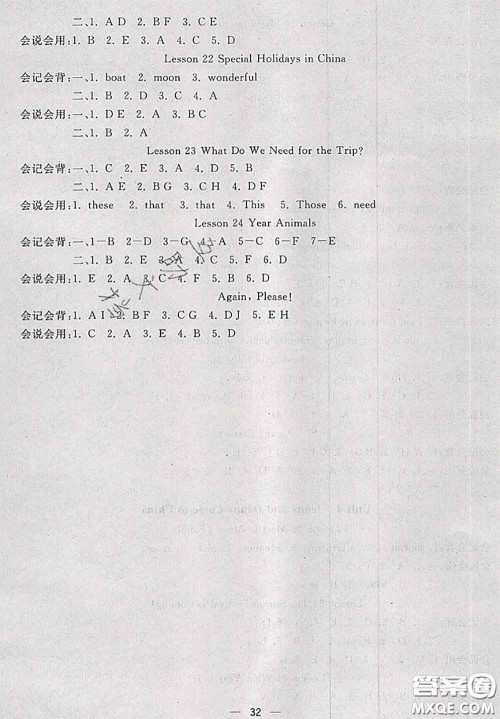 二、1. AD 2. BF 3. CE
会说会用:1. B 2. E 3. A 4. C 5. D
Lesson 22 Special Holidays in China
会记会背:一、1. boat 2. moon 3. wonderful
二、1. B 2. D 3. C 4. A
会说会用:一、1. DE 2. A 3. BC
二、1. B 2. A
Lesson 23 What Do We Need for the Trip?
会记会背:一、1. C 2. E 3. A 4. D 5. B
二、1. AE 2. BG 3. CH 4. DF
会说会用:1. these 2. that 3. that 4. This 5. Those 6. need
Lesson 24 Year Animals
会记会背:一、1—B 2—D 3—G 4—A 5—C 6—F 7—E
二、1. B 2. E 3. A 4. C 5. F 6. D
会说会用:1. E 2. A 3. C 4. F 5. B 6. D
Again, Please!
会记会背:1. AI 2. BF 3. CG 4. DJ 5. EH
会说会用:1. C 2. A 3. E 4. B 5. D
32
答案圈
MXQE.COM